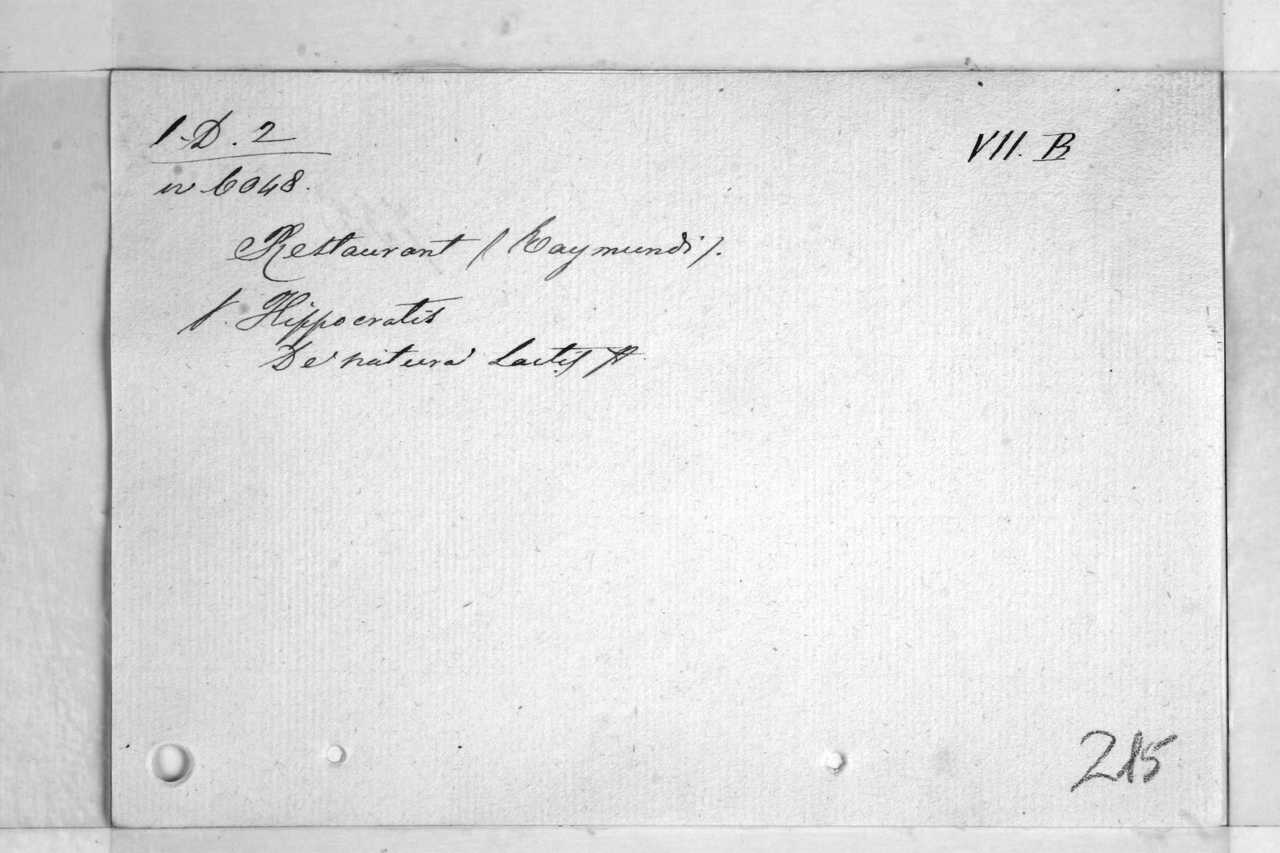 1-D. 2
VII. B
6048.
Restaurant (Raymundi).
Hippocratis
De natura Lactis
215